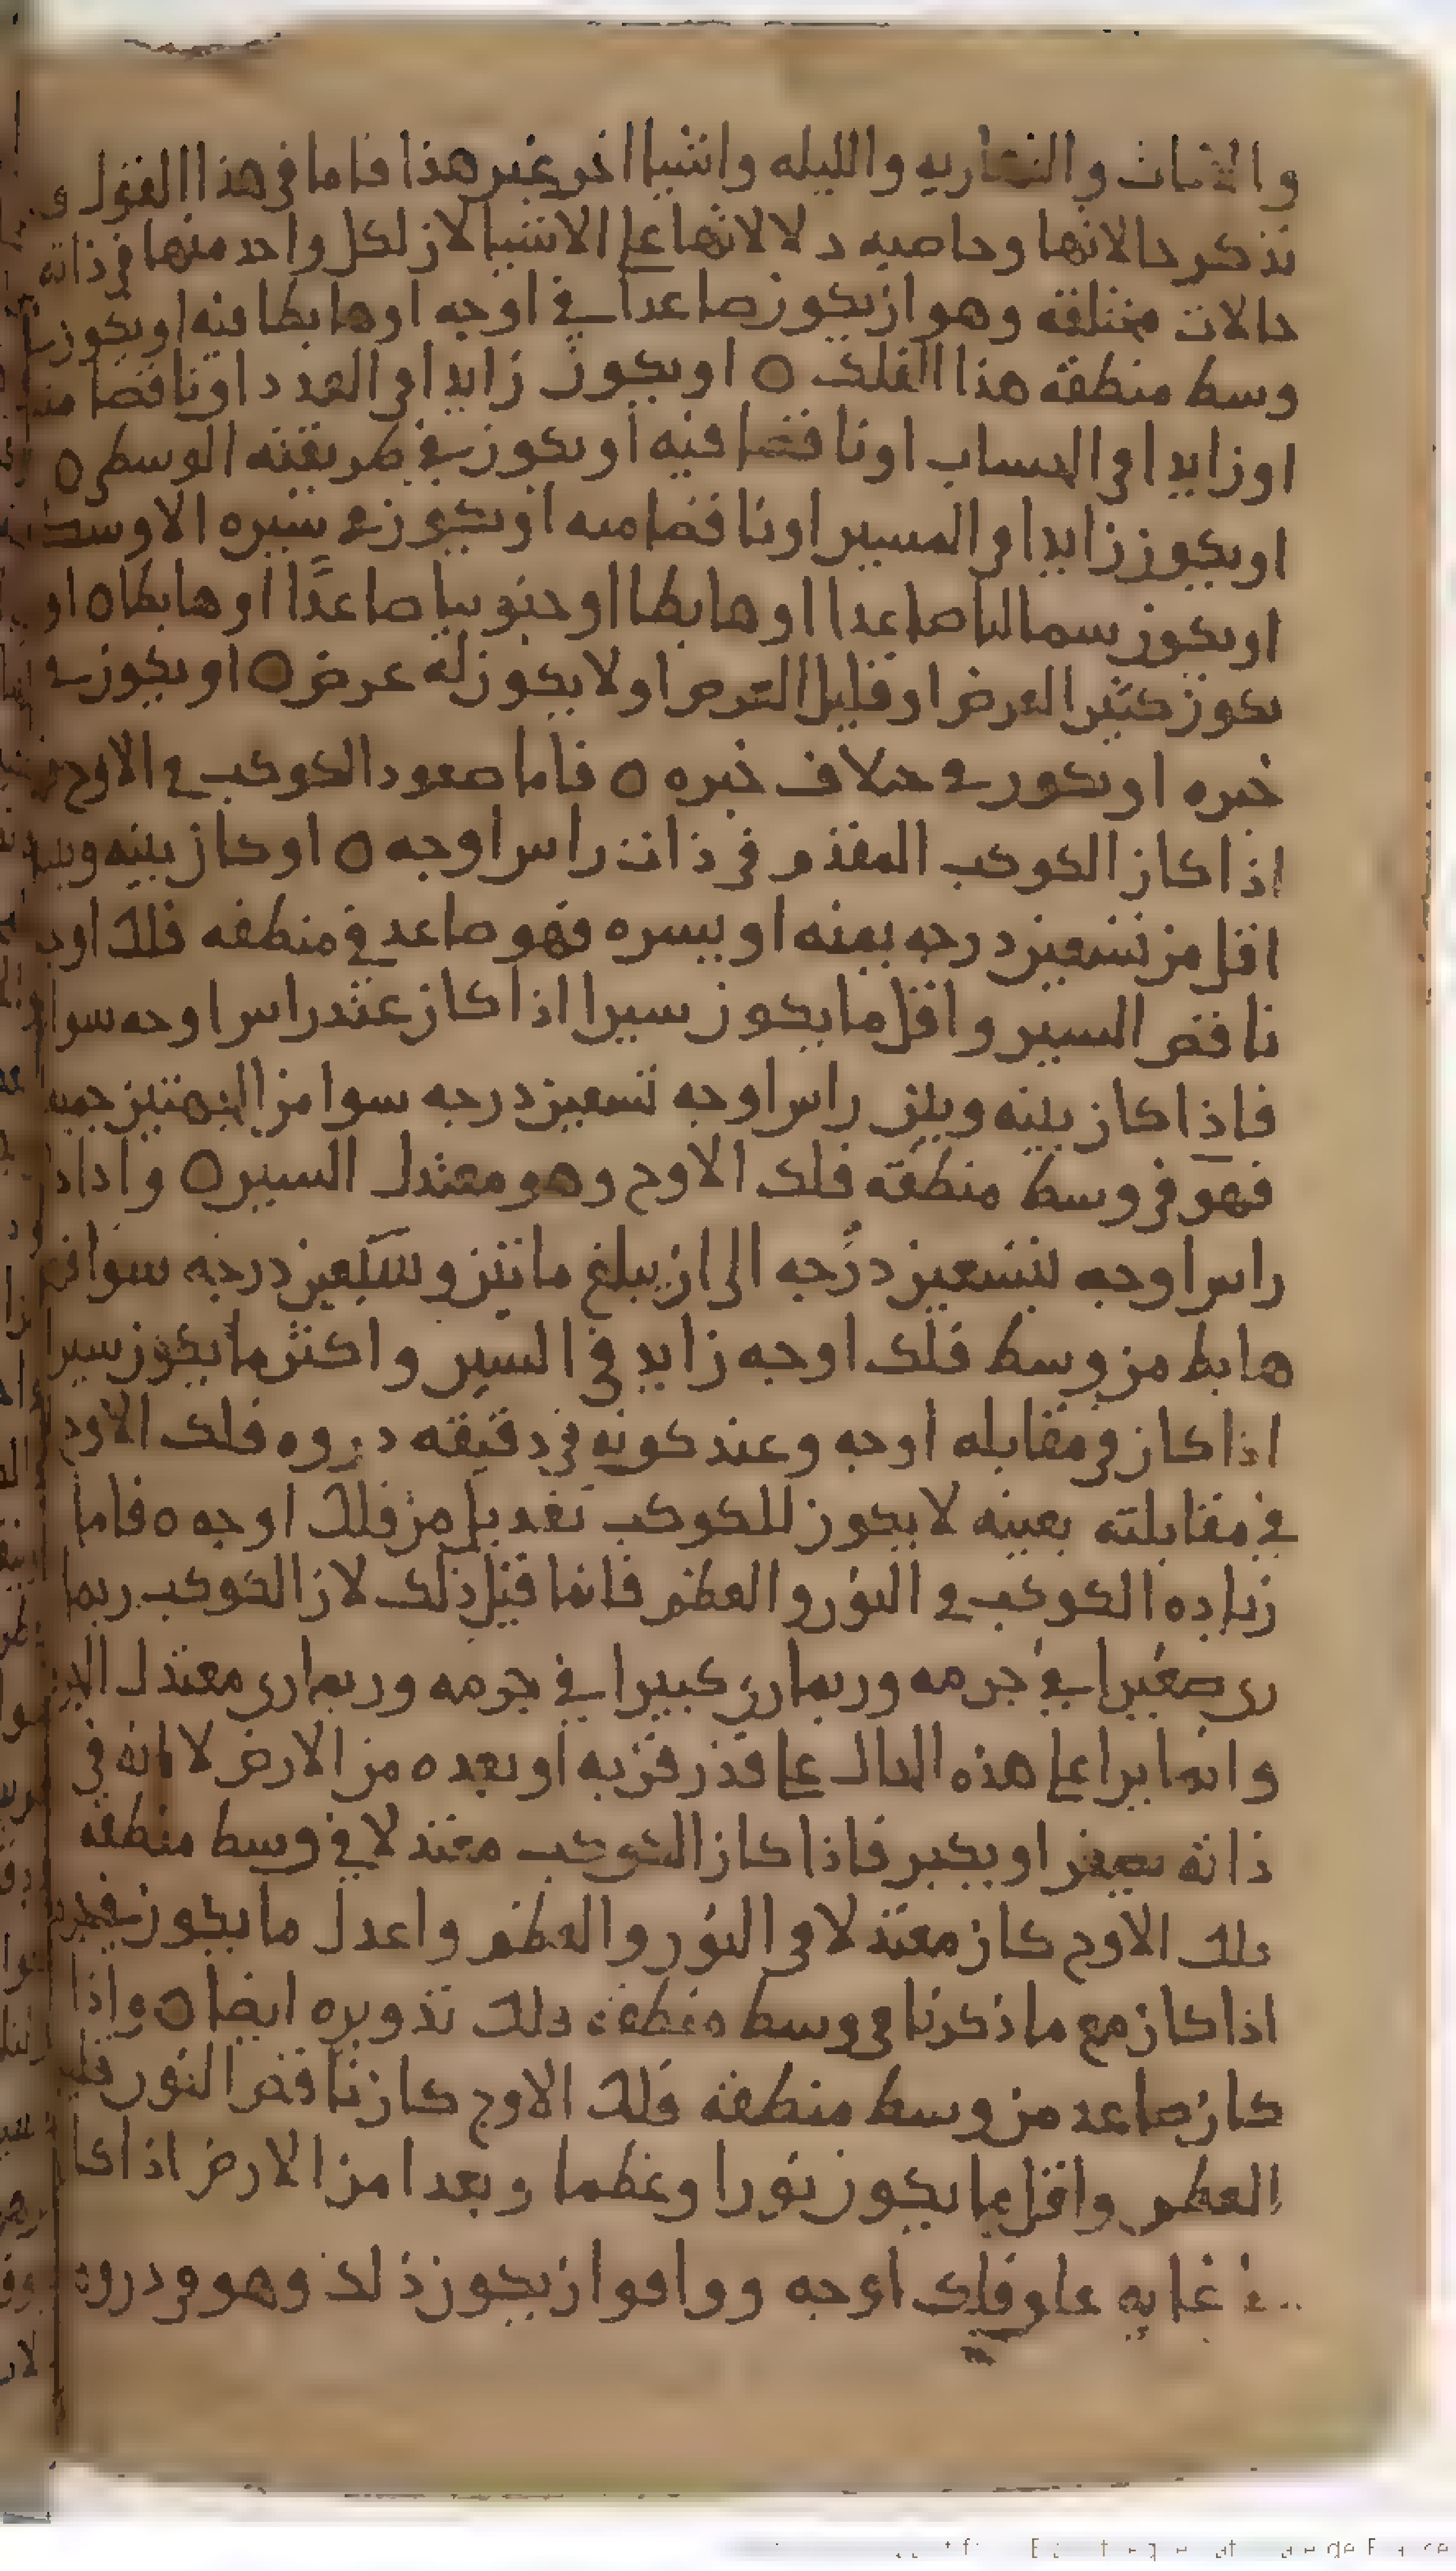 والاناث والنهاريه والليله واشيا اخر غير هذا فاما في هذا القول
نذكر حالاتها وخاصيه دلالاتها على الاشيا لان لكل واحد منها في ذاته
حالات مختلفه وهو ان يكون صاعدا في اوجه او هابطا فيه او يكون
وسط منطقة هذا الفلك ٥ او يكون زايدا في العدد او ناقصا منه
او زايدا في الحساب او ناقصا فيه او يكون في طريقته الوسطى ٥
او يكون زايدا في المسير او ناقصا منه او يكون في سيره الاوسط
او يكون سماليا صاعدا او هابطا او جنوبيا صاعدا او هابطا ٥ او
يكون كثير العرض او قليل العرض او لا يكون له عرض ٥ او يكون في
خيره او يكون في خلاف خيره ٥ فاما صعود الكوكب في الاوج
اذا كان الكوكب المقدم في ذات راس اوجه ٥ او كان بينه وبين
اقل من تسعين درجه يمنه او يسره فهو صاعد في منطقه فلك اوجه
ناقص السير واقل ما يكون سيرا اذا كان عند راس اوجه سوا
فاذا كان بينه وبين راس اوجه تسعين درجه سوا من الجهتين جميعا
فهو في وسط منطقة فلك الاوج وهو معتدل السير ٥ واذا
راس اوجه بتسعين درجه الى ان يبلغ ماتين وسبعين درجه سوا فهو
هابط من وسط فلك اوجه زايد في السير واكثر ما يكون سيرا
اذا كان في مقابله اوجه وعند كونه في دقيقه دروه فلك الاوج
في مقابلته بعينه لا يكون للكوكب تعديل من فلك اوجه ٥ فاما
زياده الكوكب في النور والعظم فانما قيل ذلك لان الكوكب ربما
رى صغيرا في جرمه وربما رى كبيرا في جرمه وربما رى معتدل
وانما يرا على هذه الحال على قدر قربه او بعده من الارض لا انه في
ذاته يصغر او يكبر فاذا كان الكوكب معتدلا في وسط منطقة
فلك الاوج كان معتدلا في النور والعظم واعدل ما يكون في جرم
اذا كان مع ما ذكرنا في وسط منطقة فلك تدويره ايضا ٥ واذا
كان صاعد من وسط منطقة فلك الاوج كان ناقص النور قليل
العظم واقل ما يكون نورا وعظما وبعدا من الارض اذا كا
في غايه علو فلك اوجه ووافق ان يكون ذلك وهو في دروه